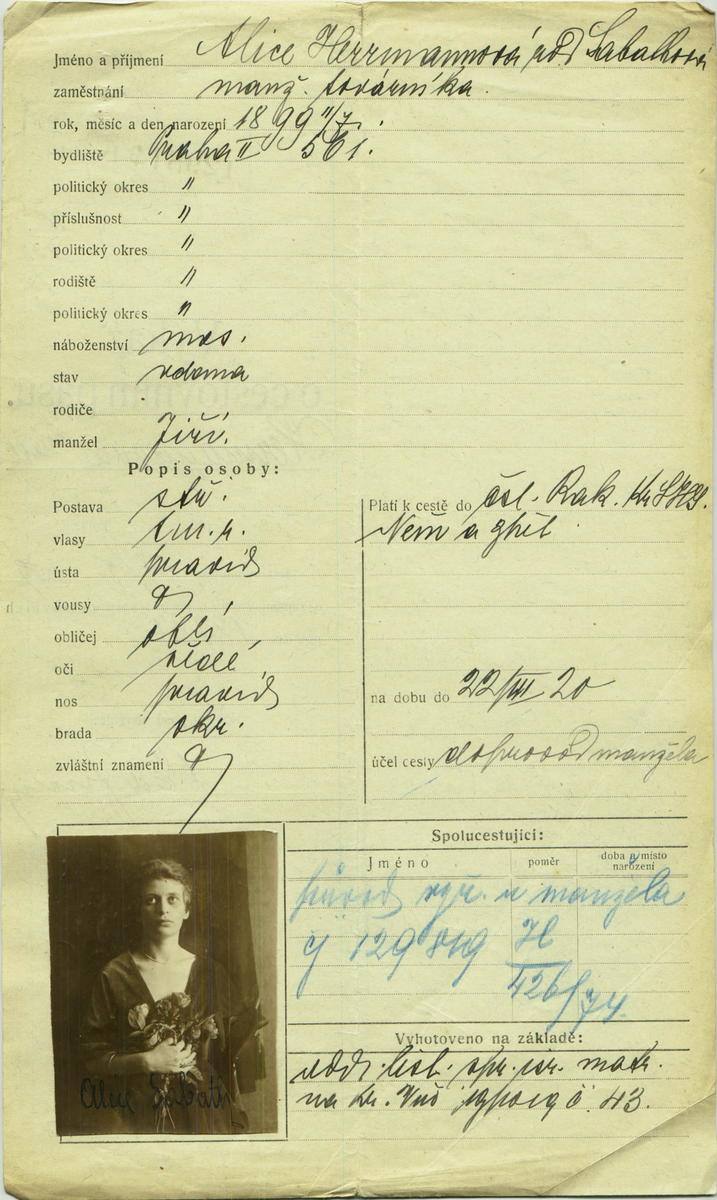 Jméno a příjmení Alice Herrmannová
zaměstnání manž. továrníka.
rok, měsíc a den narození 1899 11/7.
bydliště Praha II 561.
politický okres "
příslušnost "
politický okres "
rodiště "
politický okres "
náboženství mos.
stav vdana
rodiče
manžel Jiří.
Popis osoby:
Postava stř.
vlasy tm. h.
ústa pravid
vousy
obličej oblý
oči šedé
nos pravid
brada okr.
zvláštní znamení
Platí k cestě do čsl. Rak. Kr SHS.
Něm a zpět.
na dobu do 22/VII 20
účel cesty doprovod manžela
Spolucestující:
Jméno poměr doba a místo narození
původ vyř. u manžela
čj 129 H
426/74
Vyhotoveno na základě:
odd. list. matr.
na č. 43.
Alice